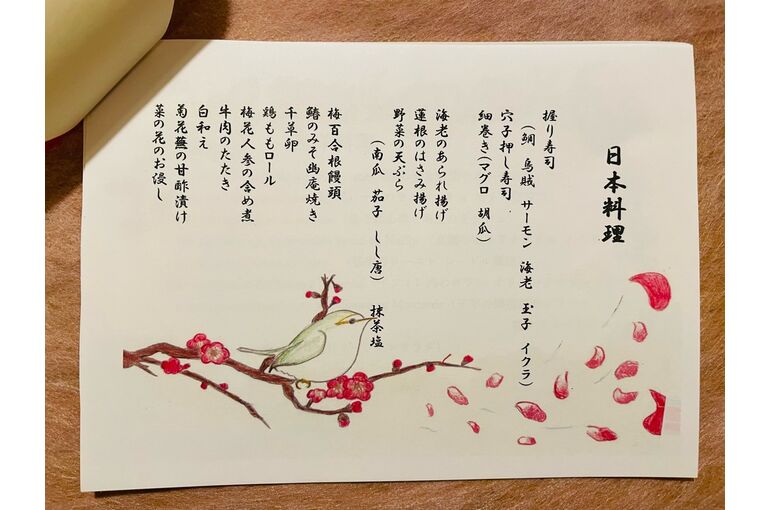 日本料理
握り寿司
(鯛 烏賊 サーモン 海老 玉子 イクラ)
穴子押し寿司
細巻き(マグロ 胡瓜)
海老のあられ揚げ
蓮根のはさみ揚げ
野菜の天ぷら
(南瓜 茄子 しし唐) 抹茶塩
梅百合根饅頭
鰆のみそ幽庵焼き
千草卵
鶏ももロール
梅花人参の含め煮
牛肉のたたき
白和え
菊花蕪の甘酢漬け
菜の花のお浸し